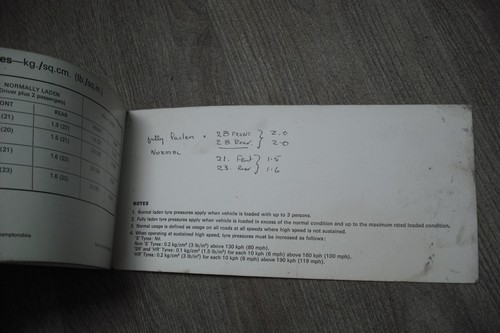 es—kg./sq.cm. (lb./sq.in.)
NORMALLY LADEN
(driver plus 2 passengers)
ONT REAR
(21) 1.6 (23)
(20) 1.6 (23)
(21) 1.6 (23)
(23) 1.6 (23)
fully laden 28 FRONT } 2.0
28 Rear } 2.0
NORMAL
21. Front } 1.5
23. Rear } 1.6
NOTES
1. Normal laden tyre pressures apply when vehicle is loaded with up to 3 persons.
2. Fully laden tyre pressures apply when vehicle is loaded in excess of the normal condition and up to the maximum rated loaded condition.
3. Normal usage is defined as usage on all roads at all speeds where high speed is not sustained.
4. When operating at sustained high speed, tyre pressures must be increased as follows:
'S' Tyres: Nil.
Non 'S' Tyres: 0.2 kg/cm² (3 lb/in²) above 130 kph (80 mph).
'SR' and 'HR' Tyres: 0.1 kg/cm² (1.5 lb/in²) for each 10 kph (6 mph) above 160 kph (100 mph).
'HR' Tyres: 0.2 kg/cm² (3 lb/in²) for each 10 kph (6 mph) above 190 kph (119 mph).